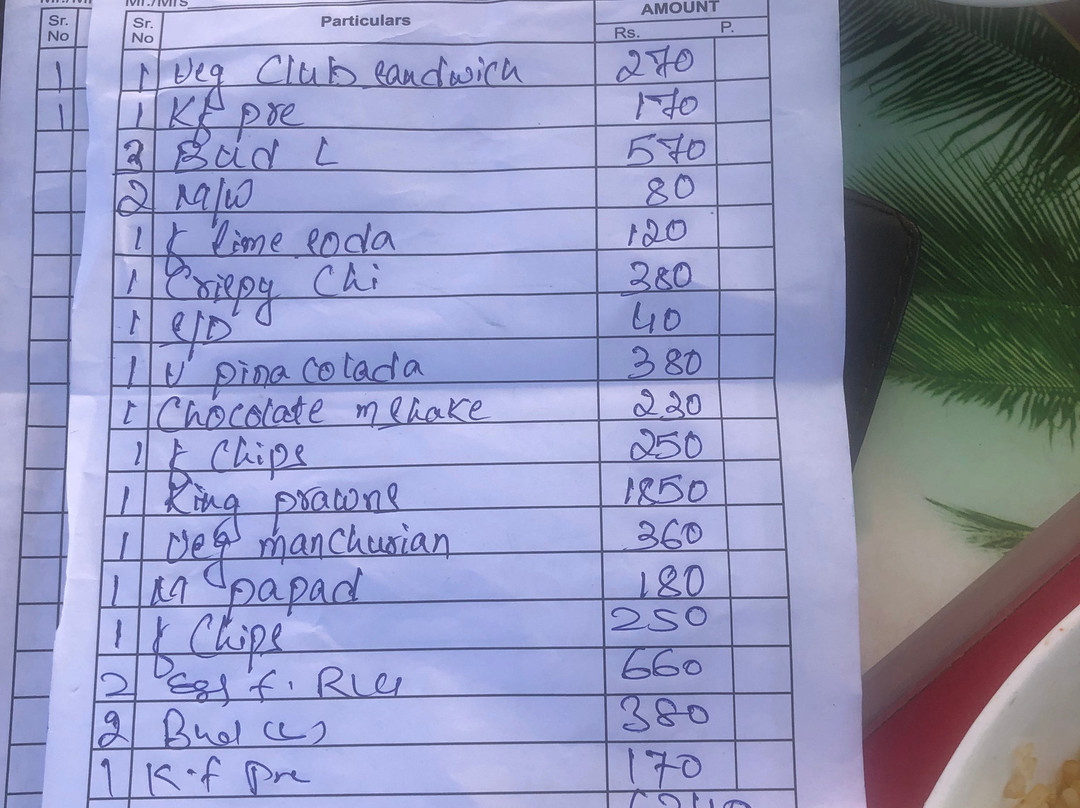 Sr. No
Sr. No Particulars AMOUNT
Rs. P.
1
1
1 Veg Club sandwich 270
1 Kf pre 170
3 Bud L 570
2 M/W 80
1 f lime soda 120
1 Crispy Chi 380
1 S/D 40
1 V pina colada 380
1 Chocolate mshake 220
1 f Chips 250
1 King prawns 1850
1 Veg manchurian 360
1 M papad 180
1 f Chips 250
2 Egg f. 660
2 Bud (L) 380
1 K.f Pre 170